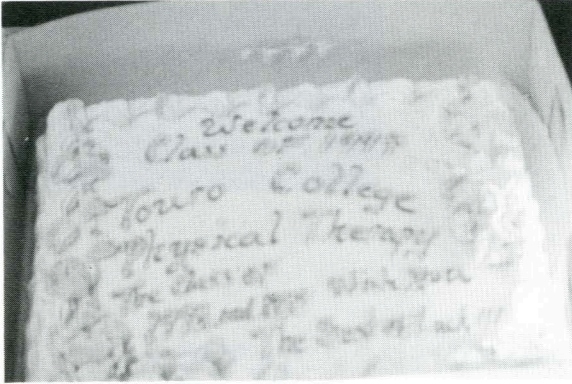 Welcome
Class of
Touro College
Physical Therapy
The Class of
and wish you
The Best of Luck!!!